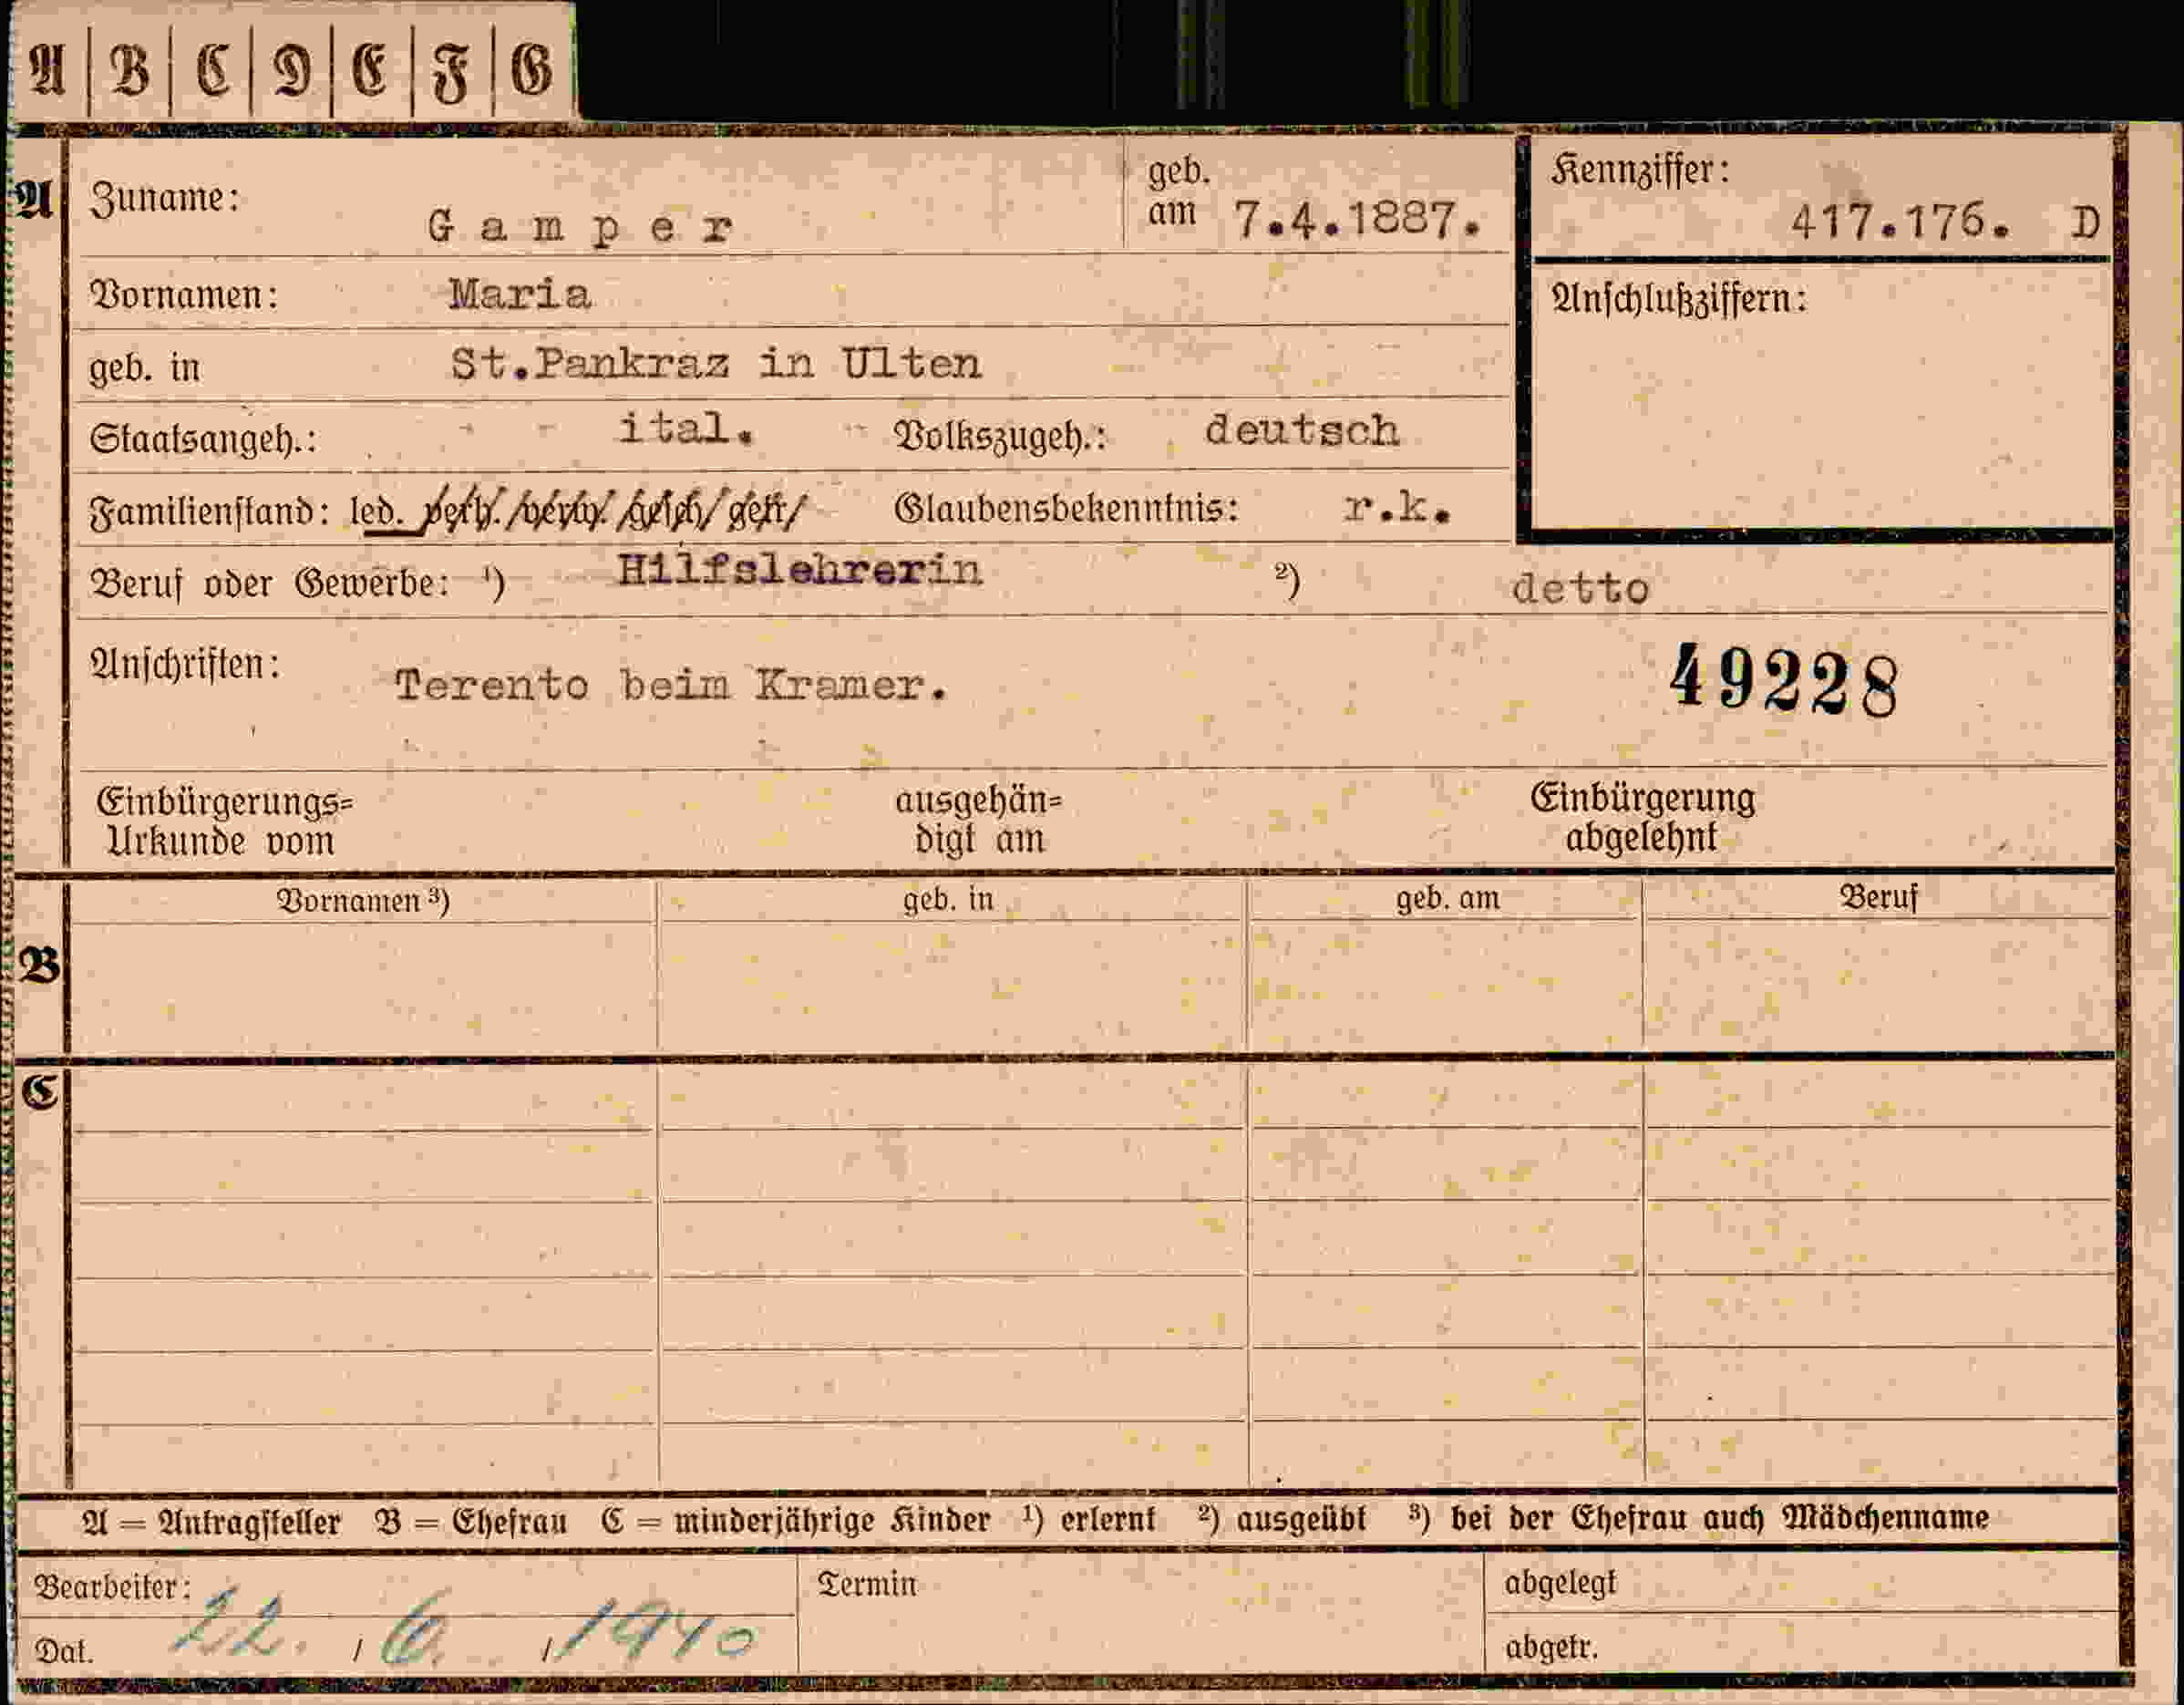 A | B | C | D | E | F | G
A Zuname: Gamper geb. am 7.4.1887. Kennziffer: 417.176. D
Vornamen: Maria Anschlußziffern:
geb. in St.Pankraz in Ulten
Staatsangeh.: ital. Volkszugeh.: deutsch
Familienstand: led. verh. verw. gesch. getr. Glaubensbekenntnis: r.k.
Beruf oder Gewerbe: ¹) Hilfslehrerin ²) detto
Anschriften: Terento beim Kramer. 49228
Einbürgerungs= ausgehän= Einbürgerung
Urkunde vom digt am abgelehnt
Vornamen ³) geb. in geb. am Beruf
B
C
A = Antragsteller B = Ehefrau C = minderjährige Kinder ¹) erlernt ²) ausgeübt ³) bei der Ehefrau auch Mädchenname
Bearbeiter: Termin abgelegt
Dat. 22. / 6. / 1940 abgetr.